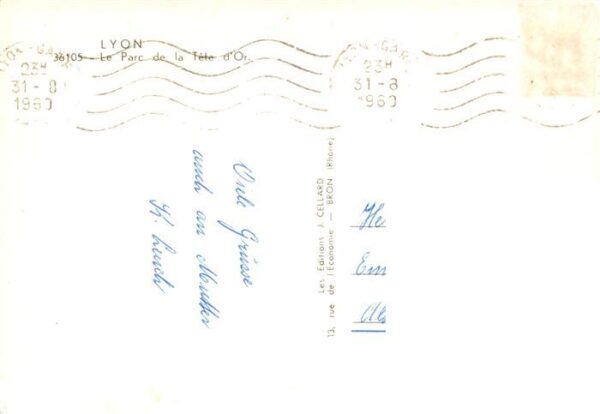 LYON
36105 - Le Parc de la Tête d'Or.
LYON-GARE
23H
31-8
1960
LYON-GARE
23H
31-8
1960
Viele Grüsse
auch an Mutter
K.
Les Editions J. CELLARD
13, rue de l'Economie — BRON (Rhône)
He
Em